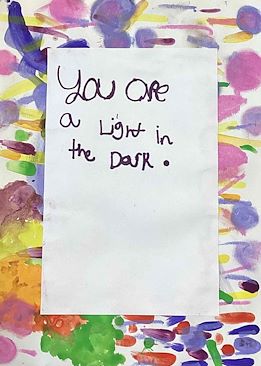 You are
a Light in
the Dark.